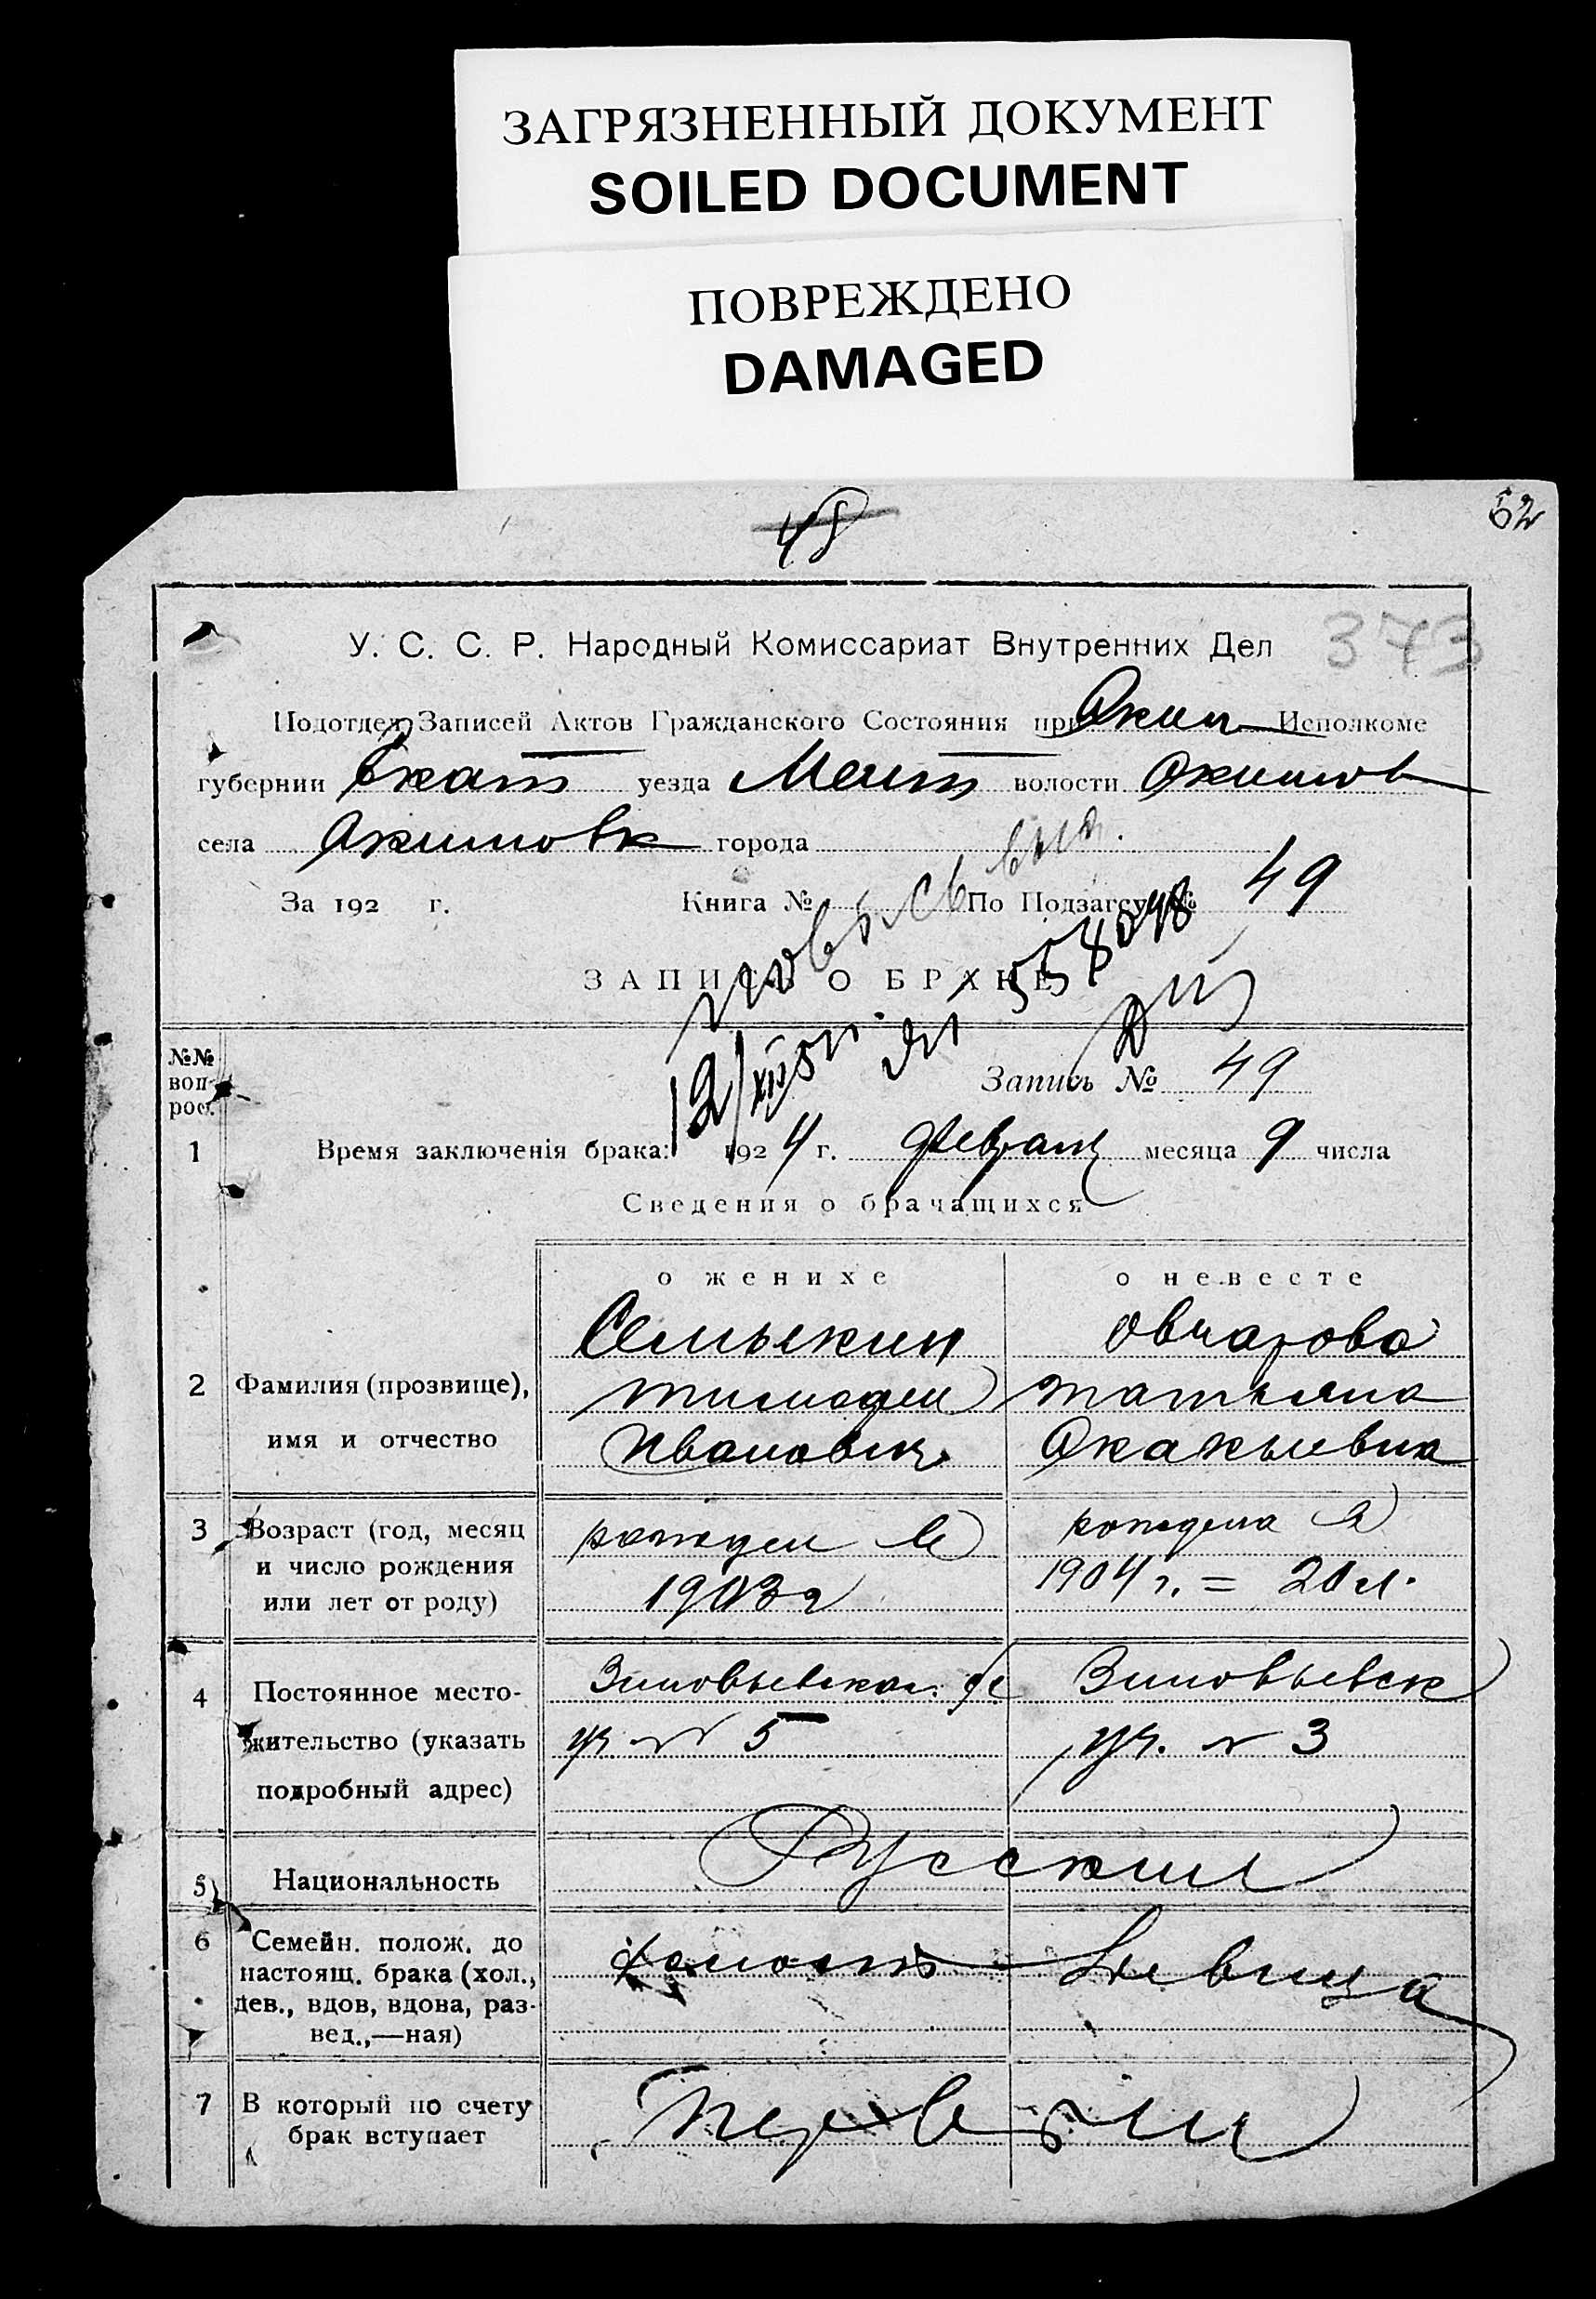 ЗАГРЯЗНЕННЫЙ ДОКУМЕНТ
SOILED DOCUMENT
ПОВРЕЖДЕНО
DAMAGED
52
48
373
У. С. С. Р. Народный Комиссариат Внутренних Дел
Подотдел Записей Актов Гражданского Состояния при Аким Исполкоме
губернии Екат уезда Мелит волости Акимов
села Акимовк города
За 192 г. Книга № По Подзагсу № 49
повт. св выд.
ЗАПИСЬ О БРАКЕ
12/XII 55048
№№ воп- рос.
Запись № 49
1 Время заключенія брака: 1924 г. февраль месяца 9 числа
Сведения о брачащихся
о женихе о невесте
Семыкин Овчарова
2 Фамилия (прозвище), Тимофей Татьяна
имя и отчество Иванович Акакьевна
3 Возраст (год, месяц рожден в рождена в
и число рождения 1903 г 1904 г. = 20 л.
или лет от роду)
4 Постоянное место- Зиновьевская Зиновьевск
жительство (указать уч № 5 уч. № 3
подробный адрес)
5 Национальность Русский
6 Семейн. полож. до Холост Девица
настоящ. брака (хол.,
дев., вдов, вдова, раз-
вед.,—ная)
7 В который по счету Первый
брак вступает